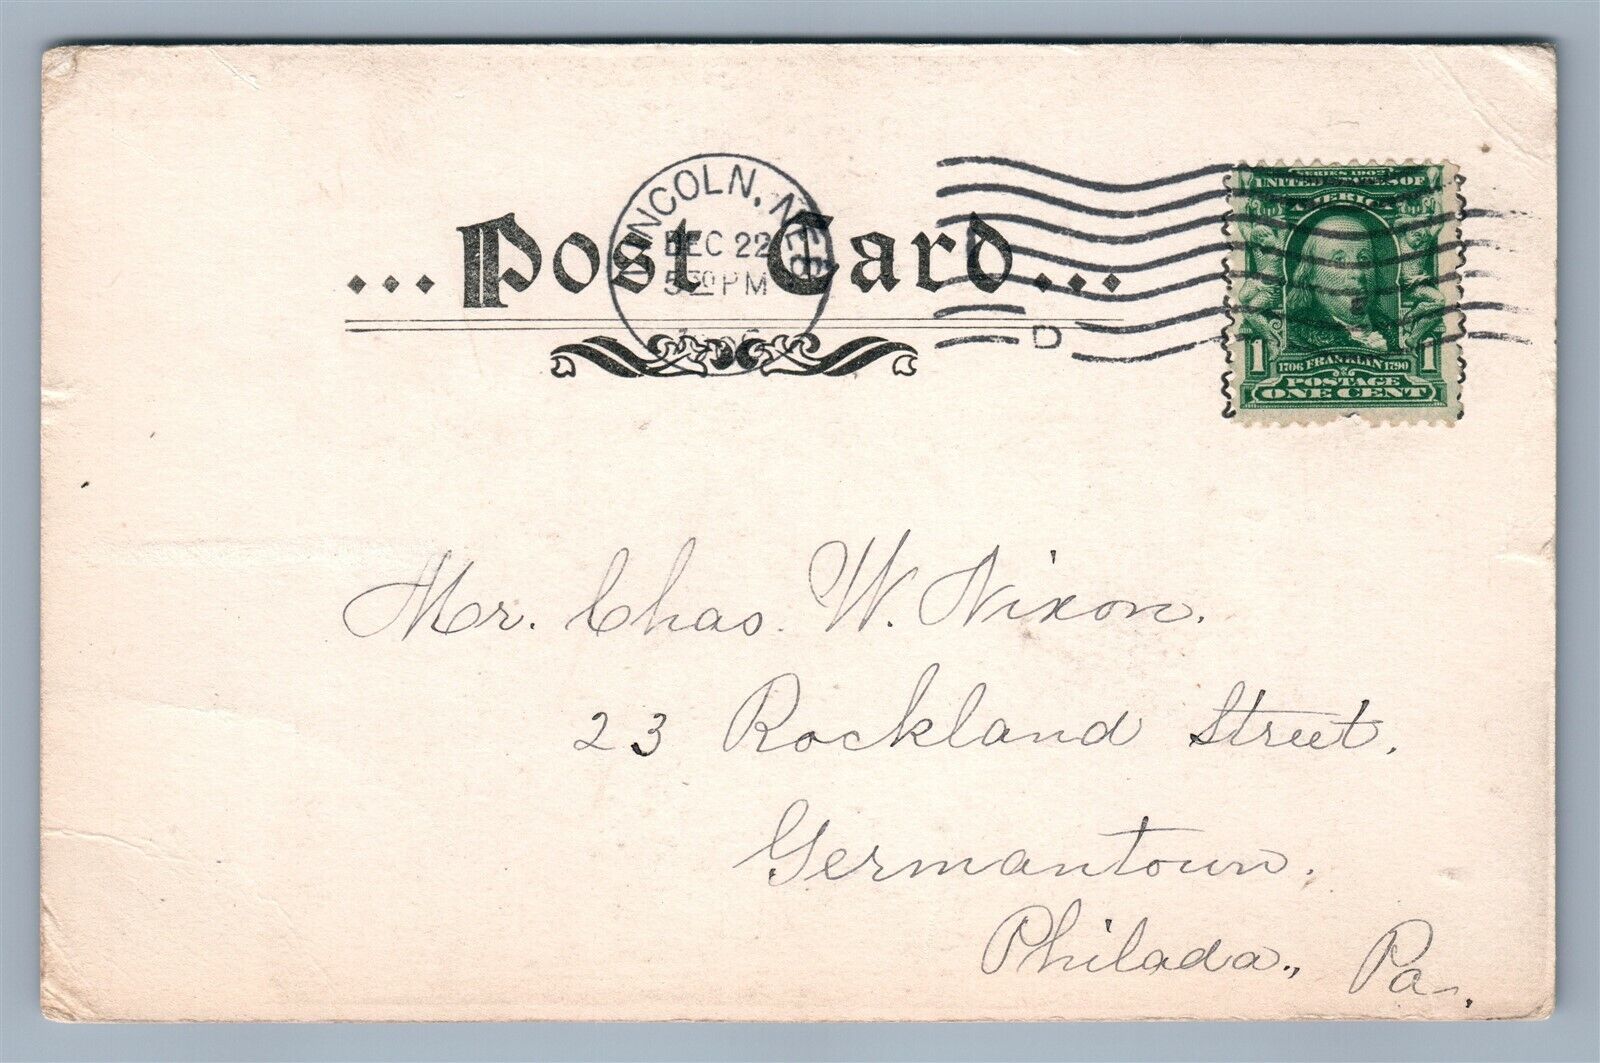 LINCOLN, NEBR.
DEC 22
5 30 PM
...Post Card...
D
SERIES 1902
UNITED STATES OF
AMERICA
1 1706 FRANKLIN 1790 1
POSTAGE
ONE CENT
Mr. Chas. W. Nixon.
23 Rockland Street.
Germantown.
Philada., Pa.